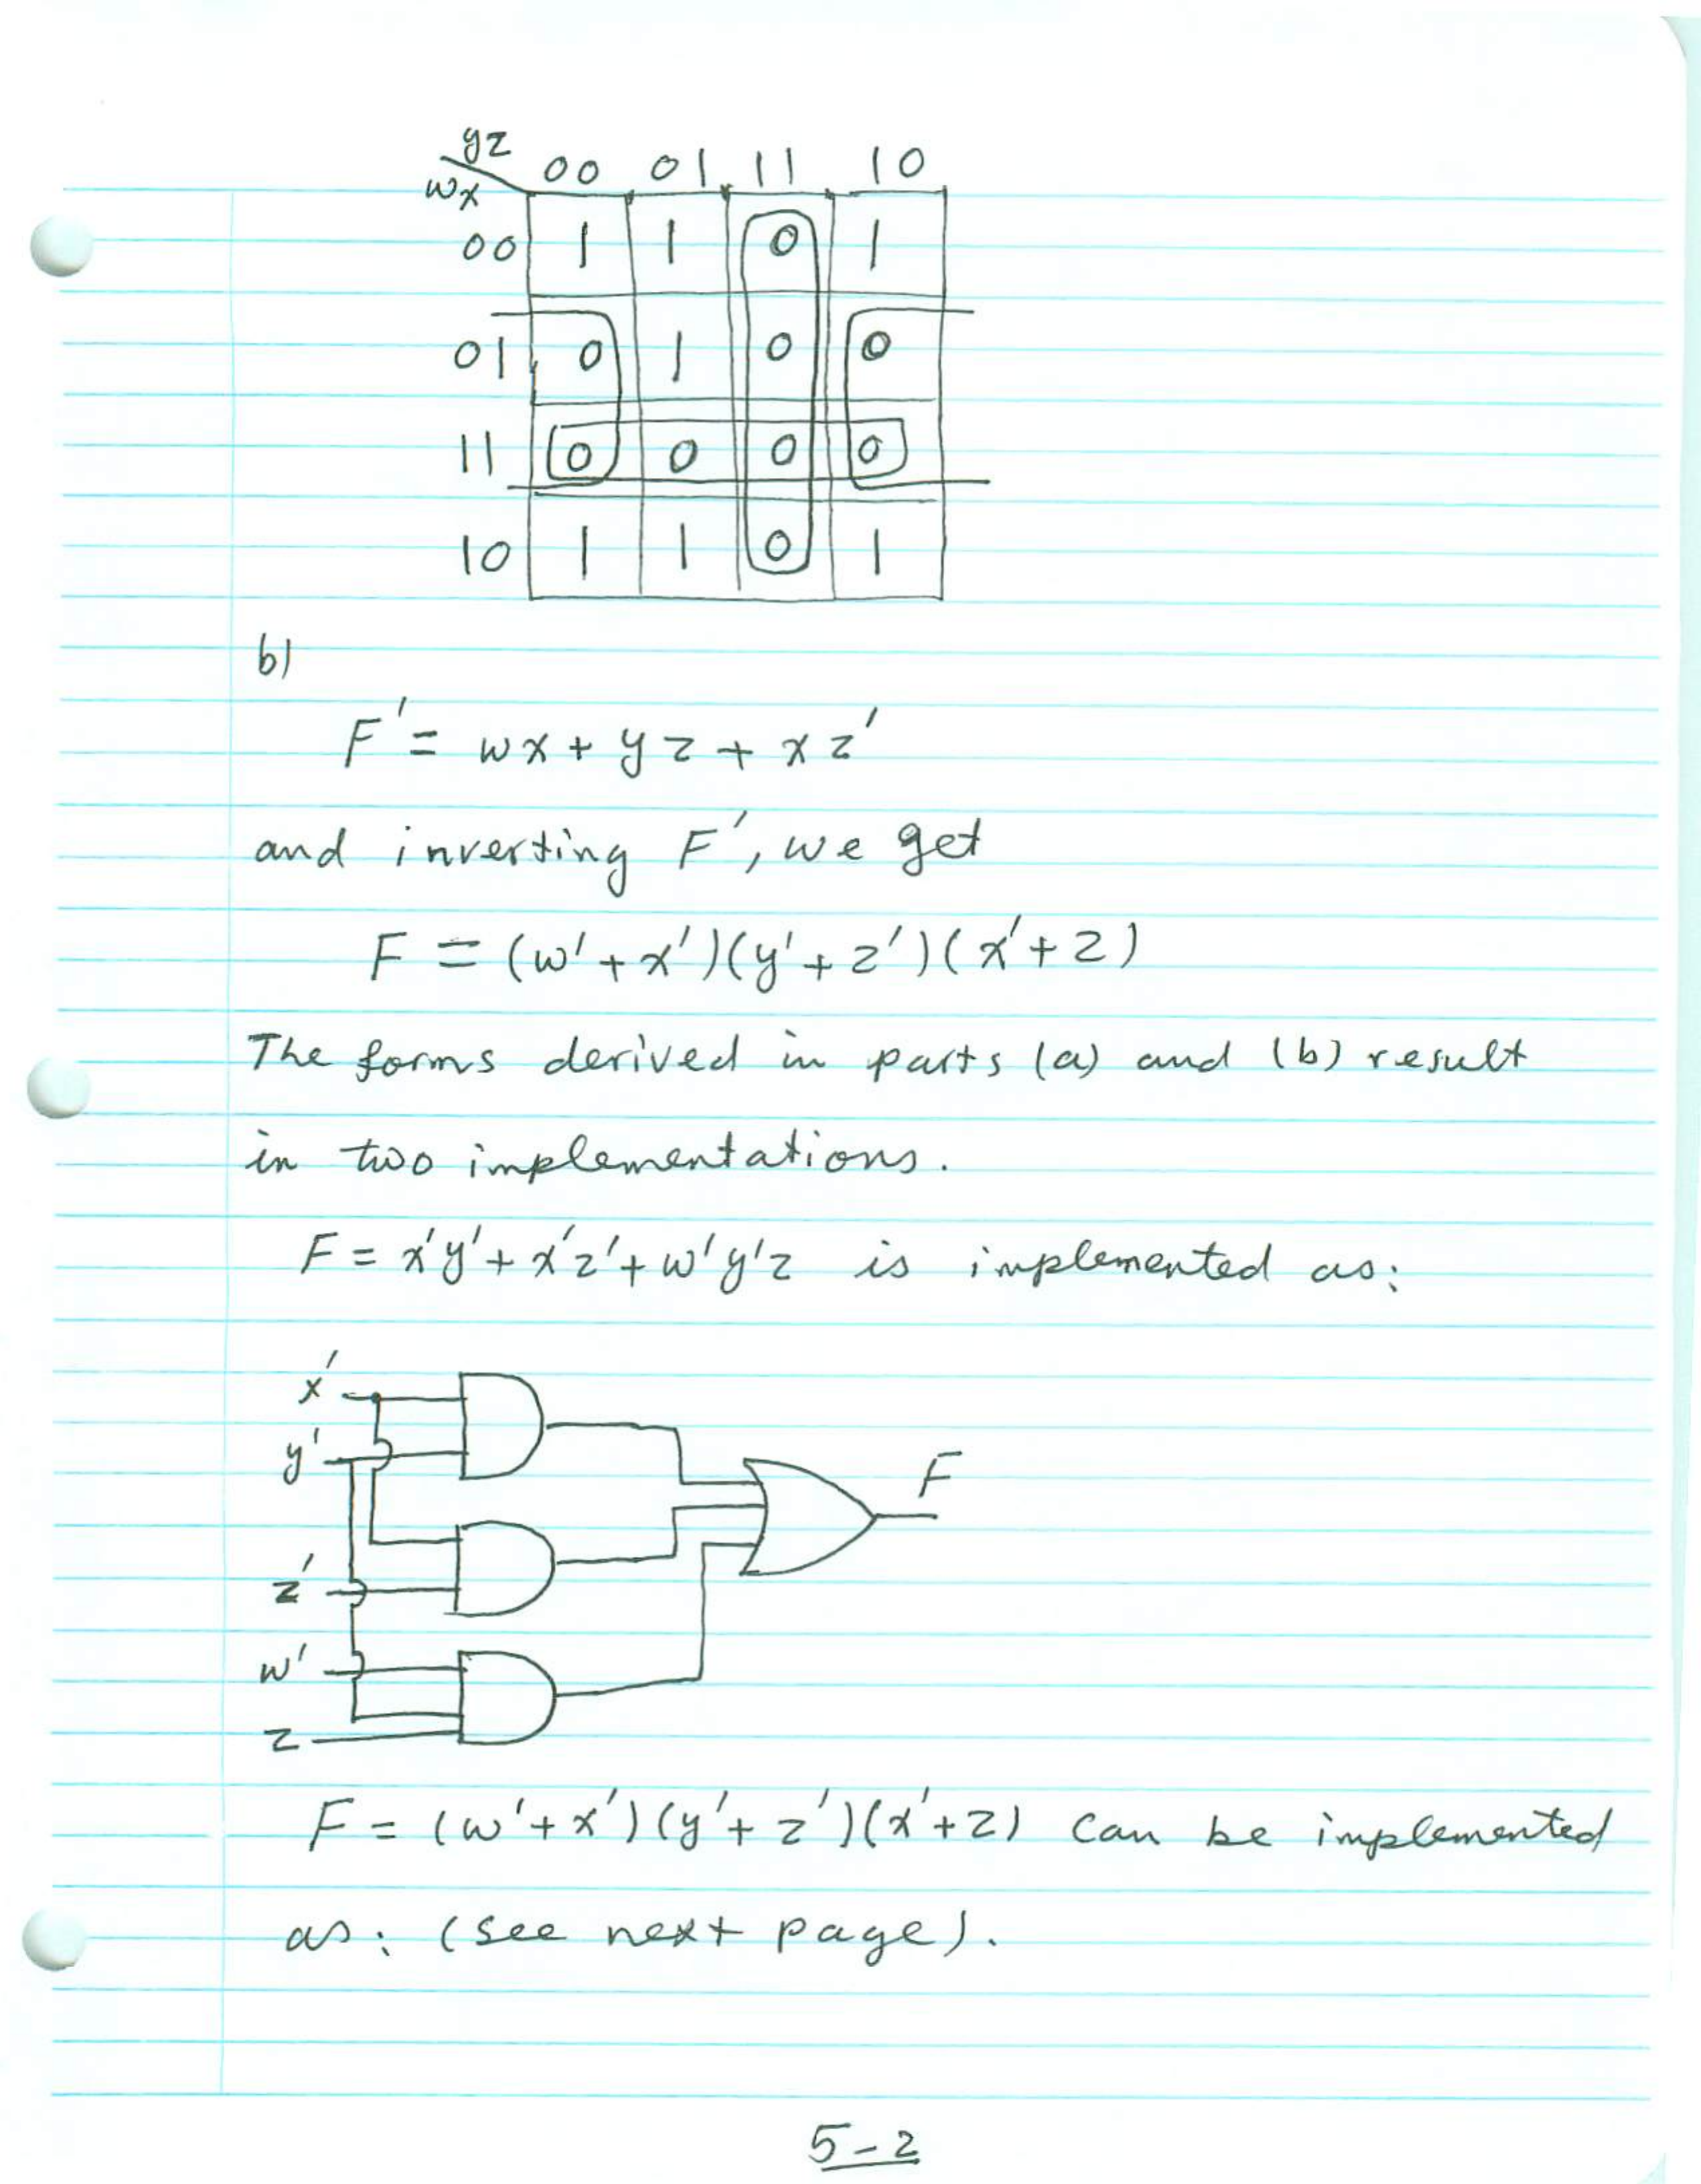 yz
wx 00 01 11 10
00 1 1 0 1
01 0 1 0 0
11 0 0 0 0
10 1 1 0 1
b)
F' = wx + yz + xz'
and inverting F', we get
F = (w' + x')(y' + z')(x' + z)
The forms derived in parts (a) and (b) result
in two implementations.
F = x'y' + x'z' + w'y'z is implemented as:
x'
y'
F
z'
w'
z
F = (w' + x')(y' + z')(x' + z) can be implemented
as: (see next page).
5-2